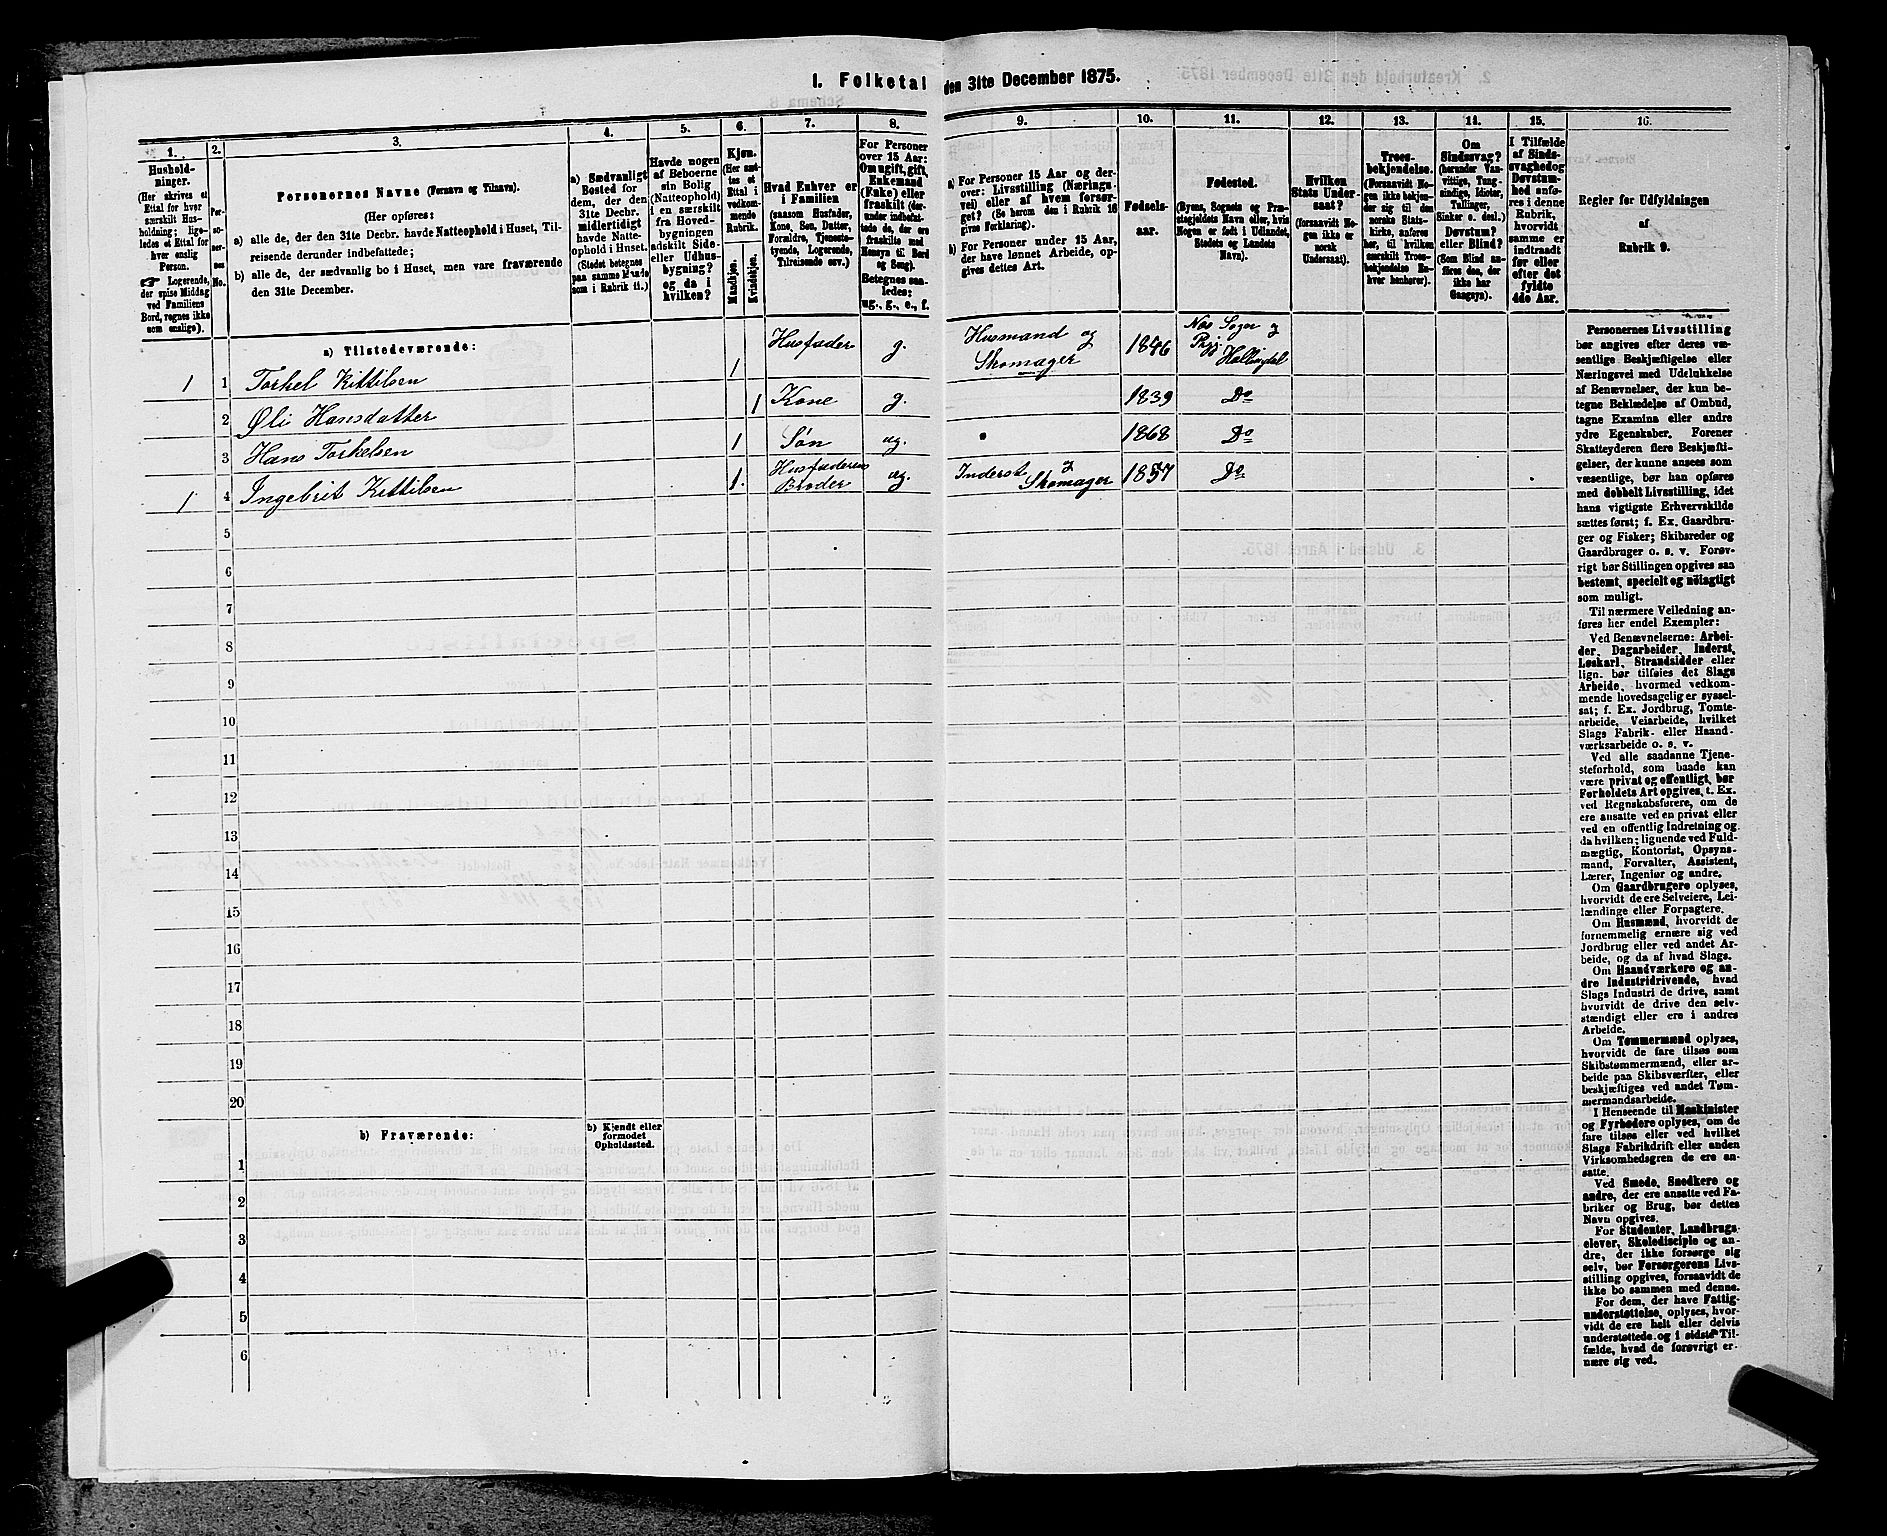 1. Folketal den 31te December 1875.
1.
2.
3.
4.
5.
6.
7.
8.
9.
10.
11.
12.
13.
14.
15.
16.
Hushold-
ninger.
(Her skrives et
Ettal for hver
særskilt Hus-
holdning; lige-
ledes et Ettal for
hver enslig
Person.
☞ Logerende,
der spise Middag
ved Familiens
Bord, regnes ikke
som enslige).
Per-
so-
ner-
nes
No.
Personernes Navne (Fornavn og Tilnavn).
(Her opføres:
a) alle de, der den 31te Decbr. havde Natteophold i Huset, Til-
reisende derunder indbefattede;
b) alle de, der sædvanlig bo i Huset, men vare fraværende
den 31te December.
a) Sædvanligt
Bosted for
dem, der den
31te Decbr.
midlertidigt
havde Natte-
ophold i Huset.
(Stedet betegnes
paa samme Maade
som i Rubrik 11.)
Havde nogen
af Beboerne
sin Bolig
(Natteophold)
i en særskilt
fra Hoved-
bygningen
adskilt Side-
eller Udhus-
bygning?
og da i
hvilken?
Kjøn.
(Her sæt-
tes et
Ettal i
vedkom-
mende
Rubrik.
Mandkjøn.
Kvindekjøn.
Hvad Enhver er
i Familien
(saasom Husfader,
Kone, Søn, Datter,
Forældre, Tjeneste-
tyende, Logerende,
Tilreisende osv.)
For Personer
over 15 Aar:
Om ugift, gift,
Enkemand
(Enke) eller
fraskilt (der-
under indbefat-
tede de, der ere
fraskilte med
Hensyn til Bord
og Seng).
Betegnes saa-
ledes:
ug., g., e., f.
a) For Personer 15 Aar og der-
over: Livsstilling (Nærings-
vei) eller af hvem forsør-
get? (Se herom den i Rubrik 16
givne Forklaring).
b) For Personer under 15 Aar,
der have lønnet Arbeide, op-
gives dettes Art.
Fødsels-
aar.
Fødested.
(Byens, Sognets og Præ-
stegjeldets Navn eller, hvis
Nogen er født i Udlandet,
Stedets og Landets
Navn).
Hvilken
Stats Under-
saat?
(forsaavidt No-
gen ikke er
norsk
Undersaat).
Troes-
bekjendelse.
(Forsaavidt No-
gen ikke bekjen-
der sig til den
norske Stats-
kirke, anføres
her, til hvilken
særskilt Troes-
bekjendelse En-
hver henhører).
Om
Sindssvag?
(herunder Van-
vittige, Tung-
sindige, Idioter,
Tullinger,
Sinker o. desl.)
Døvstum?
eller Blind?
(Som Blind an-
føres den, der
ikke har
Gangsyn).
I Tilfælde
af Sinds-
svaghed og
Døvstum-
hed anfø-
res i denne
Rubrik,
hvorvidt
samme er
indtraadt
før eller
efter det
fyldte
4de Aar.
Regler for Udfyldningen
af
Rubrik 9.
a) Tilstedeværende:
1 1 Torkel Kittilsen 1 Husfader g. Husmand og Skomager 1846 Næs Sogn og Prgj. Hallingdal
2 Øli Hansdatter 1 Kone g. 1839 Do
3 Hans Torkelsen 1 Søn ug. 1868 Do
1 4 Ingebrit Kittilsen 1. Husfaderens Broder ug. Inderst og Skomager 1857 Do
5
6
7
8
9
10
11
12
13
14
15
16
17
18
19
20
b) Fraværende:
b) Kjendt eller
formodet
Opholdssted.
1
2
3
4
5
6
Personernes Livsstilling
bør angives efter deres væ-
sentlige Beskjæftigelse eller
Næringsvei med Udelukkelse
af Benævnelser, der kun be-
tegne Beklædelse af Ombud,
tagne Examina eller andre
ydre Egenskaber. Forener
Skatteyderen flere Beskjæfti-
gelser, der kunne ansees som
væsentlige, bør han opføres
med dobbelt Livsstilling, idet
hans vigtigste Erhvervskilde
sættes først; f. Ex. Gaardbru-
ger og Fisker; Skibsreder og
Gaardbruger o. s. v. Forøv-
rigt bør Stillingen opgives saa
bestemt, specielt og nöiagtigt
som muligt.
Til nærmere Veiledning an-
føres her endel Exempler:
Ved Benævnelserne: Arbei-
der, Dagarbeider, Inderst,
Løskarl, Strandsidder eller
lign. bør tilføies det Slags
Arbeide, hvormed vedkom-
mende hovedsagelig er syssel-
sat; f. Ex. Jordbrug, Tomte-
arbeide, Veiarbeide, hvilket
Slags Fabrik- eller Haand-
værksarbeide o. s. v.
Ved alle saadanne Tjene-
steforhold, som baade kan
være privat og offentligt, bør
Forholdets Art opgives, t. Ex.
ved Regnskabsførere, om de
ere ansatte ved en privat eller
ved en offentlig Indretning og
da hvilken; lignende ved Fuld-
mægtig, Kontorist, Opsyns-
mand, Forvalter, Assistent,
Lærer, Ingeniør og andre.
Om Gaardbrugere oplyses,
hvorvidt de ere Selveiere, Lei-
lændinge eller Forpagtere.
Om Husmænd, hvorvidt de
fornemmelig ernære sig ved
Jordbrug eller ved andet Ar-
beide, og da af hvad Slags.
Om Haandværkere og an-
dre Industridrivende, hvad
Slags Industri de drive, samt
hvorvidt de drive den selv-
stændigt eller ere i andres
Arbeide.
Om Tømmermænd oplyses,
hvorvidt de fare tilsøs som
Skibstømmermænd, eller ar-
beide paa Skibsværfter, eller
beskjæftiges ved andet Tøm-
mermandsarbeide.
I Henseende til Maskinister
og Fyrbødere oplyses, om de
fare tilsøs eller ved hvilket
Slags Fabrikdrift eller anden
Virksomhedsgren de ere an-
satte.
Ved Smede, Snedkere og
andre, der ere ansatte ved Fa-
briker og Brug, bør dettes
Navn opgives.
For Studenter, Landbrugs-
elever, Skoledisciple og an-
dre, der ikke forsørge sig
selv, bør Forsørgerens Livs-
stilling opgives, forsaavidt de
ikke bo sammen med denne.
For dem, der have Fattig-
understøttelse, oplyses, hvor-
vidt de ere helt eller delvis
understøttede og i sidste Til-
fælde, hvad de forøvrigt er-
nære sig ved.